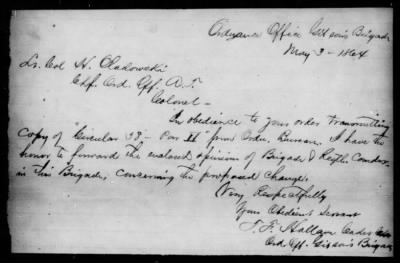 Ordnance Office Gibson's Brigade
May 3 - 1864
Lt. Col H. Oladowski
Chf. Ord. Off. A.T.
Colonel -
In obedience to your order transmitting
Copy of "Circular 38 - Par II" from Ordn. Bureau. I have the
honor to forward the enclosed opinion of Brigade & Regtl. Comders
in this Brigade, concerning the proposed change.
Very Respectfully
Your Obedient Servant
T. F. Hallam
Ord. Off. Gibson's Brigade